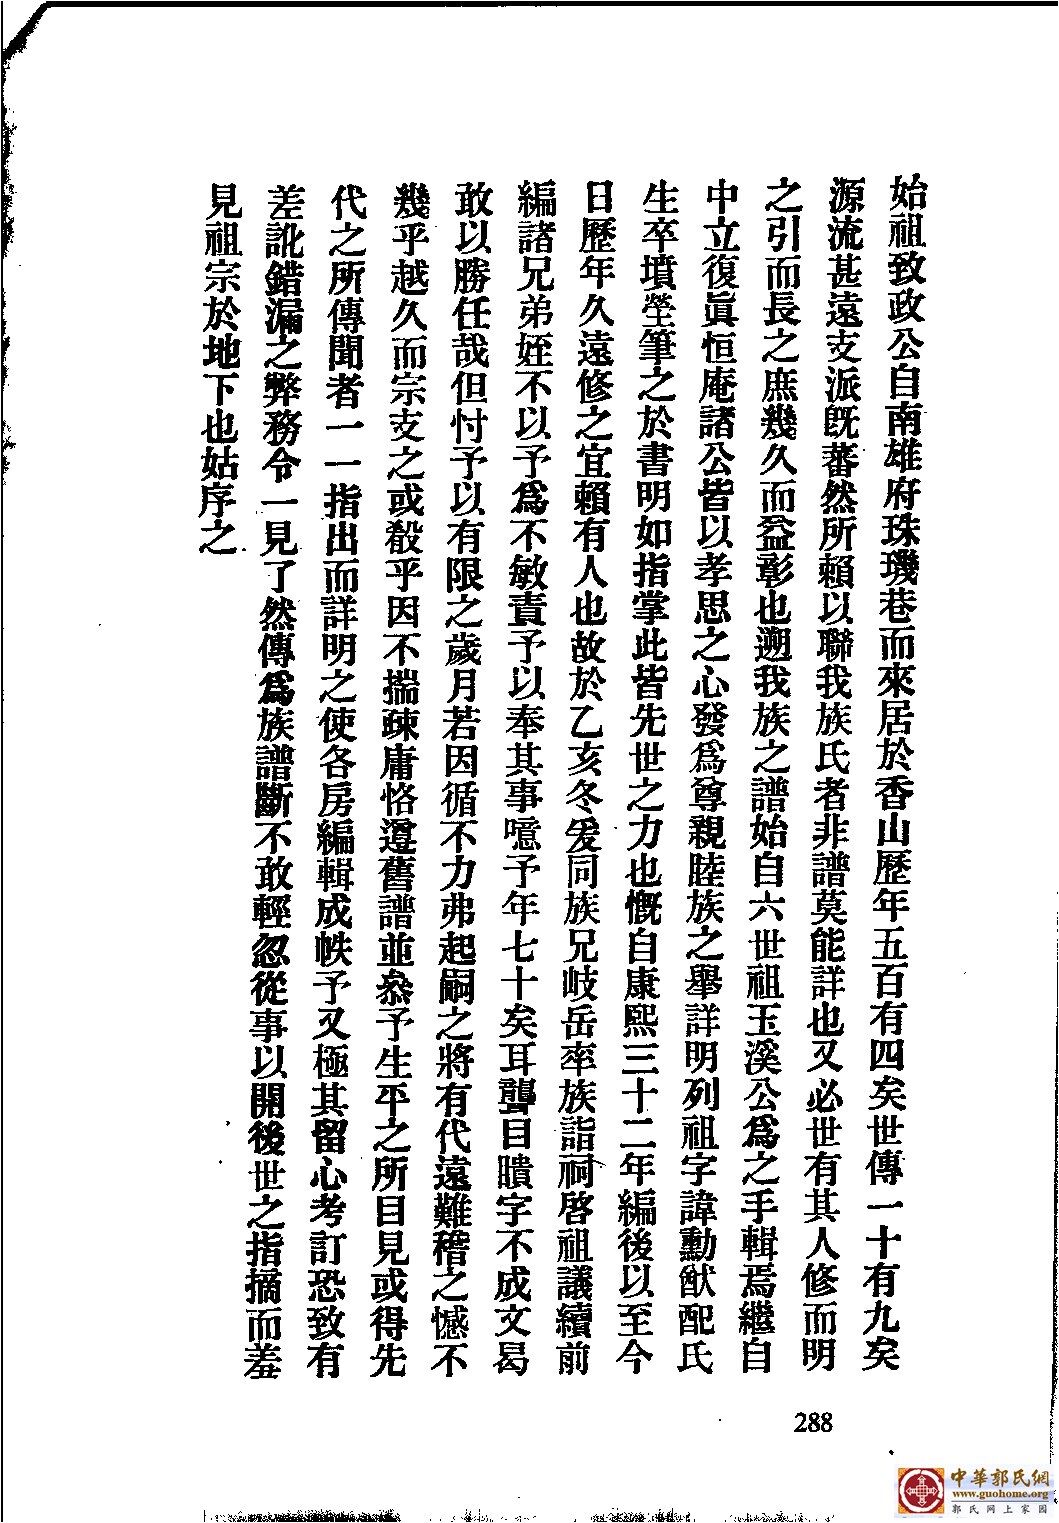 始祖致政公自南雄府珠璣巷而來居於香山歷年五百有四矣世傳一十有九矣
源流甚遠支派旣蕃然所賴以聯我族氏者非譜莫能詳也又必世有其人修而明
之引而長之庶幾久而益彰也遡我族之譜始自六世祖玉溪公爲之手輯焉繼自
中立復眞恒庵諸公皆以孝思之心發爲尊親睦族之舉詳明列祖字諱勳猷配氏
生卒墳塋筆之於書明如指掌此皆先世之力也慨自康熙三十二年編後以至今
日歷年久遠修之宜賴有人也故於乙亥冬爰同族兄岐岳率族詣祠啓祖議續前
編諸兄弟姪不以予爲不敏責予以奉其事噫予年七十矣耳聾目瞶字不成文曷
敢以勝任哉但忖予以有限之歲月若因循不力弗起嗣之將有代遠難稽之憾不
幾乎越久而宗支之或殽乎因不揣疎庸恪遵舊譜並叅予生平之所目見或得先
代之所傳聞者一一指出而詳明之使各房編輯成帙予又極其留心考訂恐致有
差訛錯漏之弊務令一見了然傳爲族譜斷不敢輕忽從事以開後世之指摘而羞
見祖宗於地下也姑序之
288
中華郭氏網
www.guohome.org
郭氏网上家园